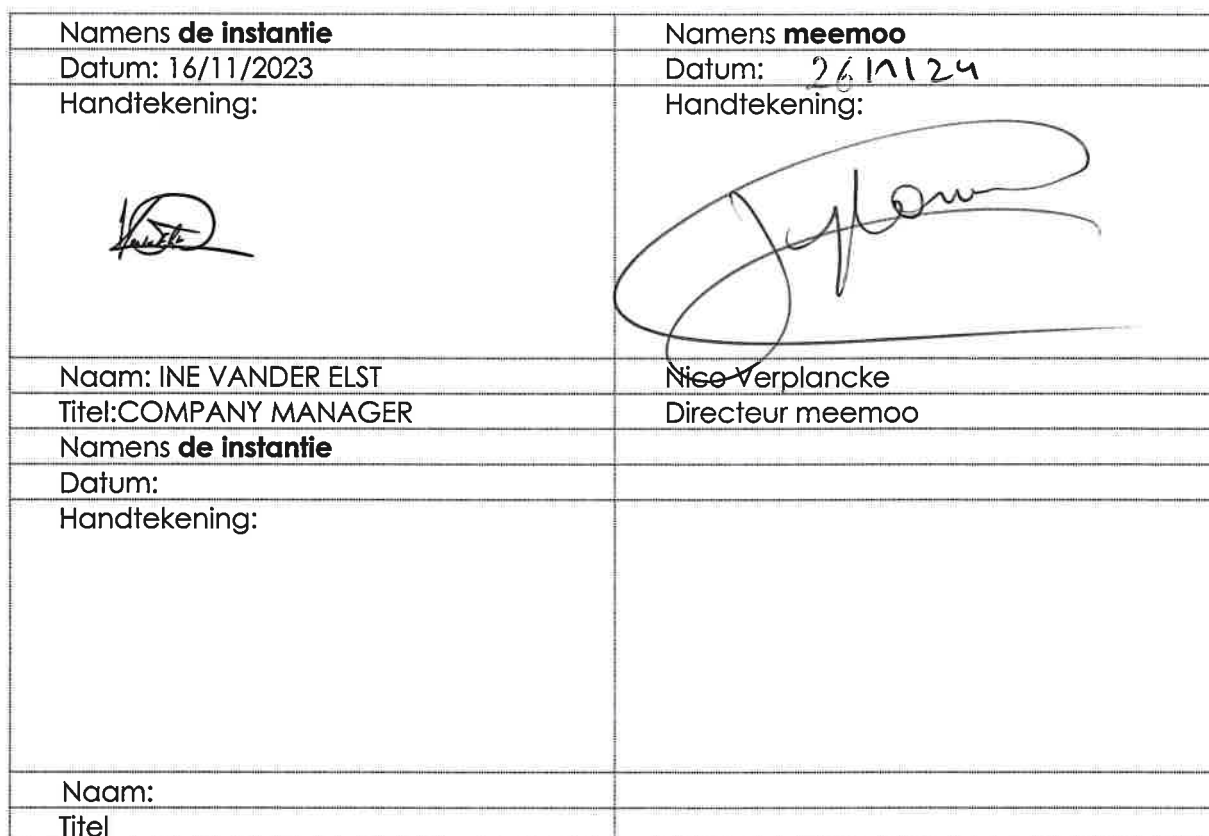 Namens de instantie
Namens meemoo
Datum: 16/11/2023
Datum:
Handtekening:
Handtekening:
Naam: INE VANDER ELST
Nico Verplancke
Titel:COMPANY MANAGER
Directeur meemoo
Namens de instantie
Datum:
Handtekening:
Naam:
Titel